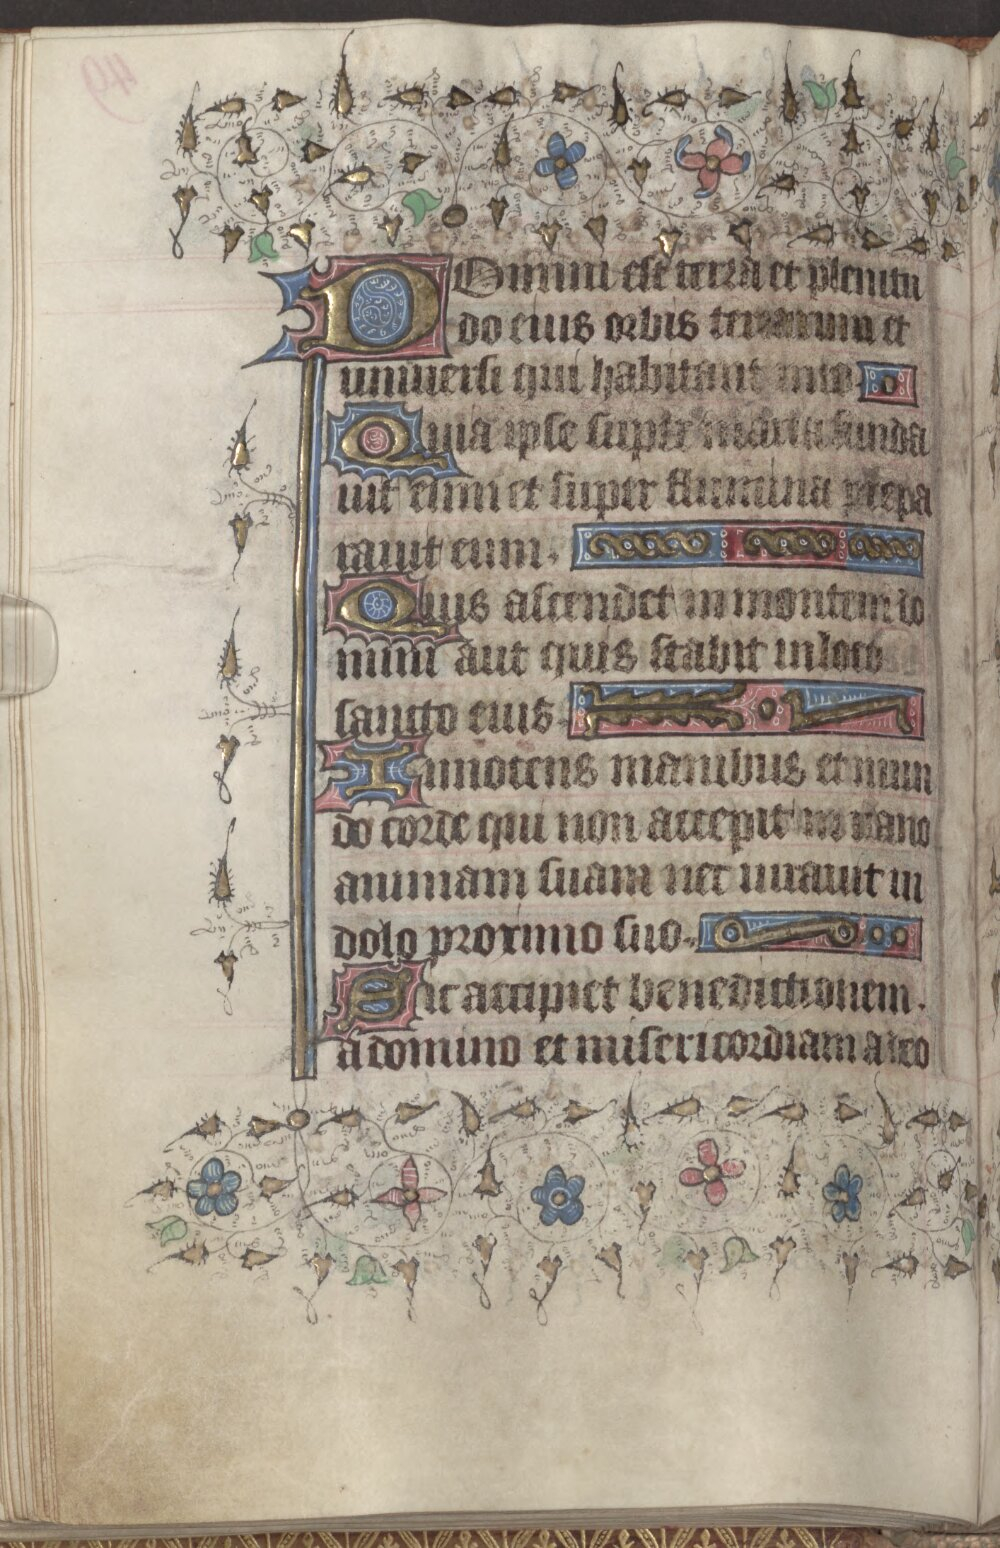 Domini est terra et plenitu
do eius orbis terrarum et
universi qui habitant in eo
Quia ipse super maria funda
vit eum et super flumina prepa
ravit eum.
Quis ascendet in montem do
mini aut quis stabit in loco
sancto eius.
Innocens manibus et mun
do corde qui non accepit in vano
animam suam nec iuravit in
dolo proximo suo.
Hic accipiet benedictionem.
a domino et misericordiam a deo